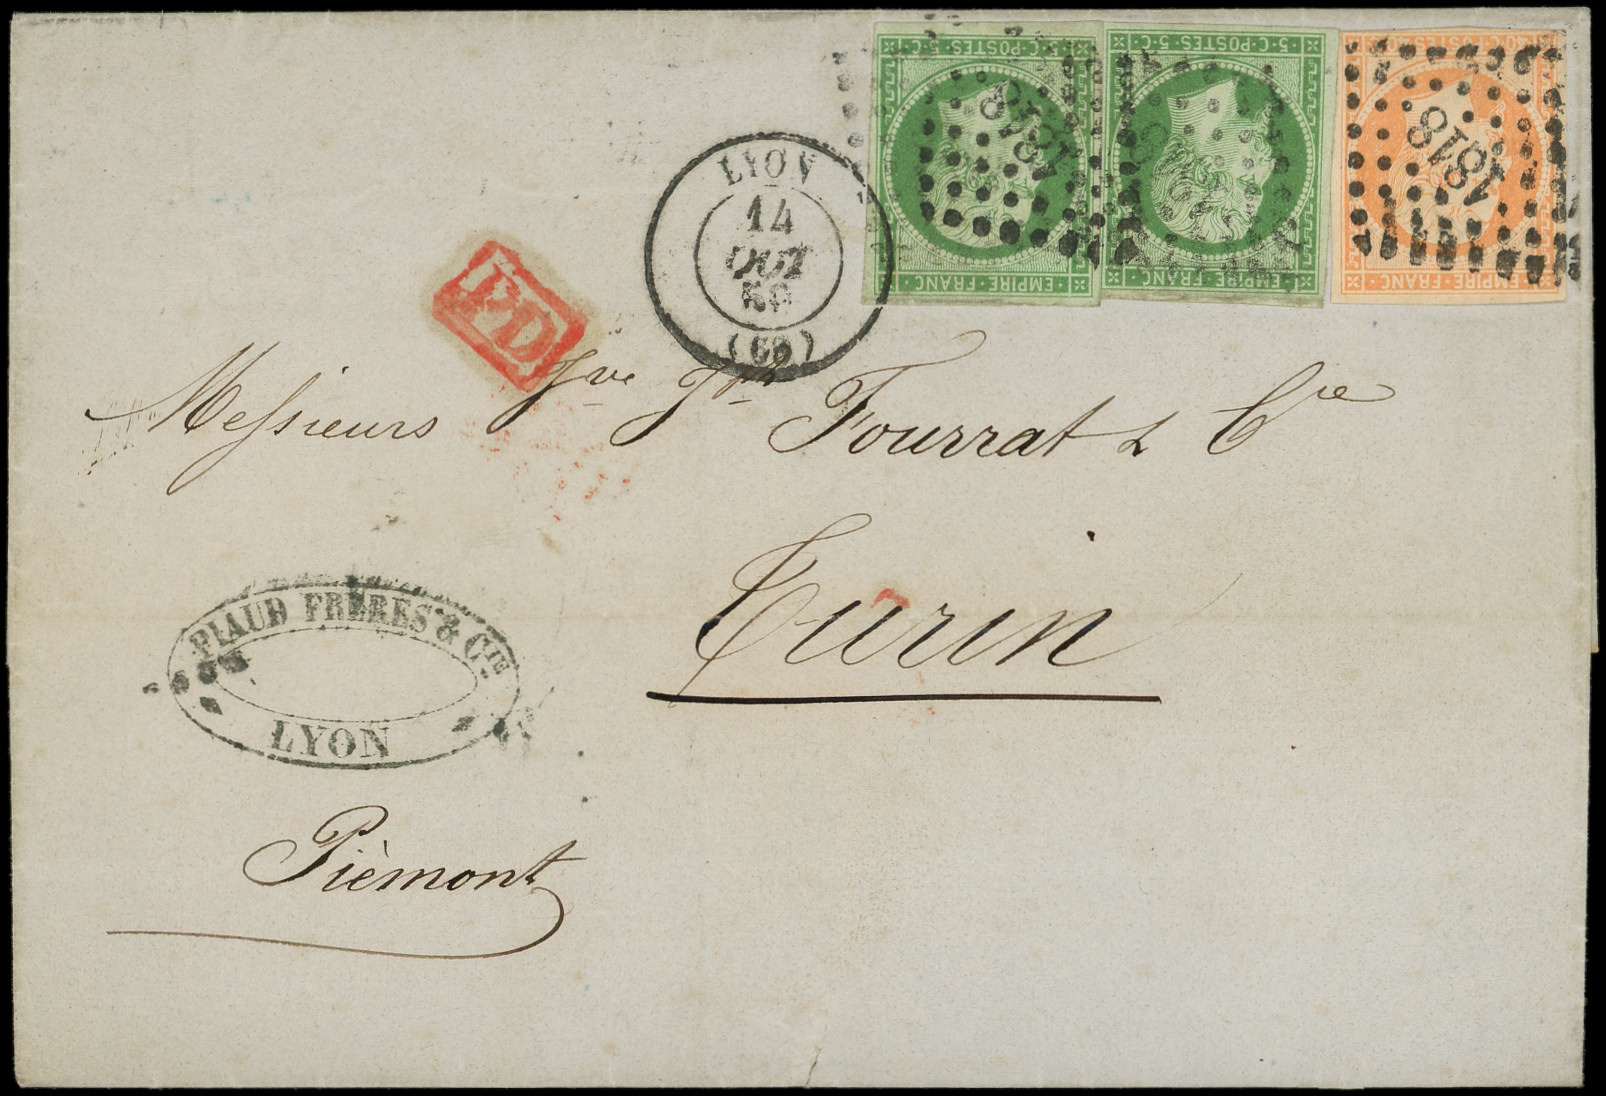 5·C·POSTES·5·C
EMPIRE·FRANC
1818
5·C·POSTES·5·C
EMPIRE·FRANC
40·C·POSTES·40·C
EMPIRE·FRANC
1818
LYON
14
OUT
(68)
PD
Messieurs Fourrat & Cie
Turin
PIAUD FRÈRES & CIE
LYON
Pièmont